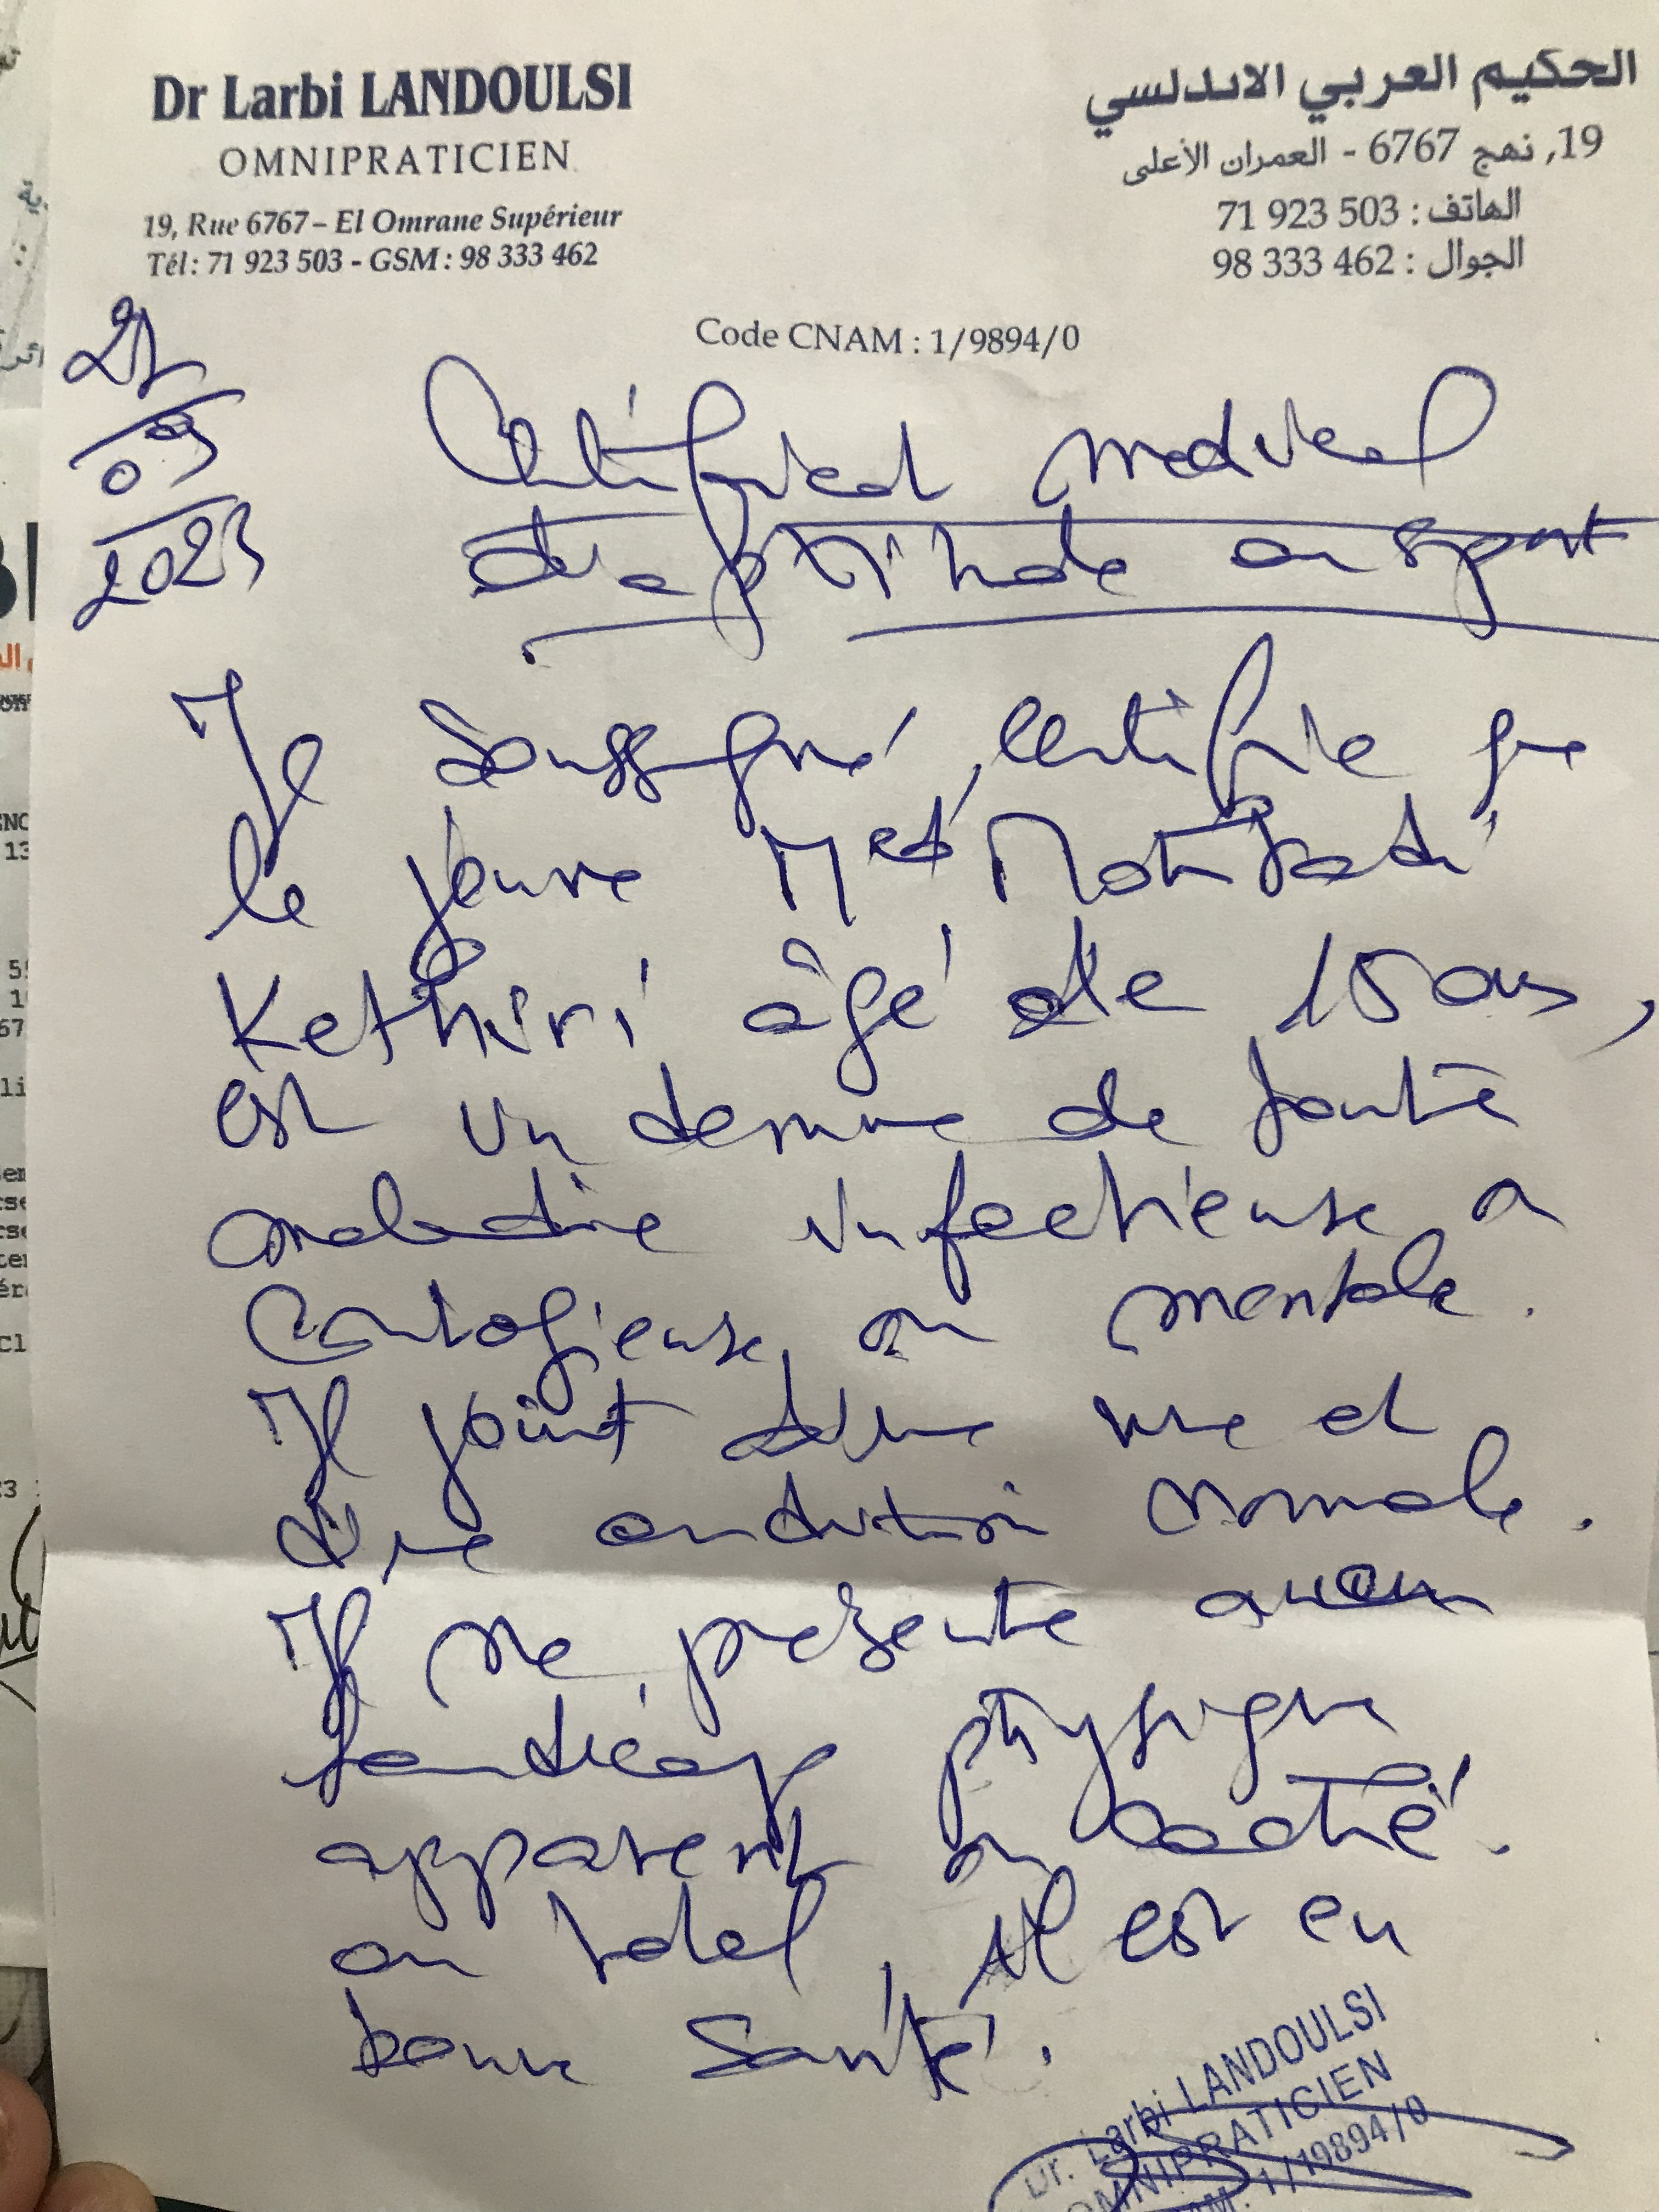 Dr Larbi LANDOULSI
OMNIPRATICIEN
19, Rue 6767 – El Omrane Supérieur
Tél : 71 923 503 - GSM : 98 333 462
الحكيم العربي الاندلسي
19, نهج 6767 - العمران الأعلى
الهاتف : 71 923 503
الجوال : 98 333 462
Code CNAM : 1/9894/0
2023
Certificat medical
d'aptitude au sport
Je soussigné, certifie que
le jeune Med
Kethiri âgé de 15 ans,
est un demne de toute
maladie infectieuse,
Contagieuse, ou mentale.
Il jouit d'une vue et
d'une audition normale.
Il ne présente aucun
handicap physique
apparent ou caché.
au total, il est en
bonne santé.
Dr. Larbi LANDOULSI
OMNIPRATICIEN
1/19894/0